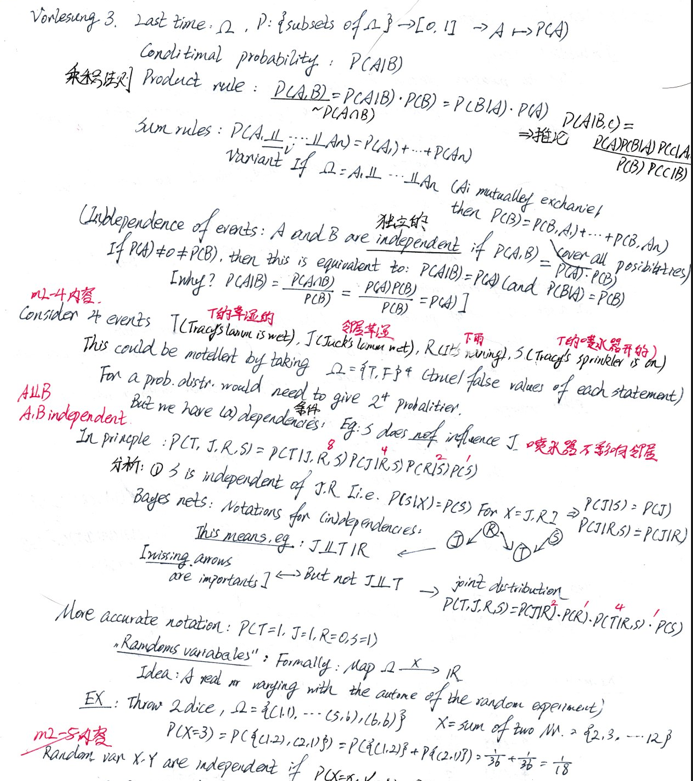 Vorlesung 3. Last time. Ω, P: {subsets of Ω} → [0, 1] → A ↦ P(A)
Conditimal probability : P(A|B)
Product rule : P(A,B) = P(A|B) · P(B) = P(B|A) · P(A)
~P(A∩B)
P(A|B,C) =
⇒推论 P(A)P(B|A)P(C|A
P(B) P(C|B)
Sum rules : P(A, ⊥⊥ ··· ⊥⊥ An) = P(A,) + ··· + P(An)
Variant If Ω = A, ⊥⊥ ··· ⊥⊥ An (Ai mutually
then P(B) = P(B, A,) + ··· + P(B, An)
(over all posibilitres)
独立的
(In)dependence of events : A and B are independent if P(A,B) = P(A)·P(B)
If P(A)≠0≠P(B), then this is equivalent to: P(A|B) = P(A) (and P(B|A) = P(B)
[why? P(A|B) = P(A∩B)/P(B) = P(A)P(B)/P(B) = P(A) ]
m2-4内容
T的草湿的 邻居草湿 下雨 T的喷水器开的
Consider 4 events T(Tracy's lawn is wet), J(Jack's lawn wet), R(It's raining), S(Tracy's sprinkler is on)
This could be motellert by taking Ω = {T, F}4 (true/false values of each statement)
For a prob. distr. would need to give 2⁴ probalitier.
A⊥⊥B
条件
But we have (a) dependencies: Eg: S does not influence J. 喷水器不影响邻居
A.B independent
In principle : P(T, J, R, S) = P(T|J, R, S) P(J|R, S) P(R|S) P(S)
8 4 2 1
分析: ① S is independent of J.R [i.e. P(S|X) = P(S) For X = J, R] ⇒ P(J|S) = P(J)
P(J|R,S) = P(J|R)
Bayes nets: Notations for (in)dependencies.
J R T S
This means, eg : J⊥⊥T|R ←
[missing arrows
are importants] ↔ But not J⊥⊥T → joint distribution
P(T, J, R, S) = P(J|R) · P(R) · P(T|R,S) · P(S)
2 1 4 1
More accurate notation : P(T=1, J=1, R=0, S=1)
„Ramdoms variabales" : Formally : Map Ω —X→ IR
Idea : A real nr varying with the autome of the random experiment)
EX : Throw 2 dice, Ω = {(1,1), ··· (5,6), (6,6)} X = sum of two Nr. = {2,3, ··· 12}
P(X=3) = P({(1,2), (2,1)}) = P({(1,2)} + P{(2,1)} = 1/36 + 1/36 = 1/18
m2-5内容
Random var X.Y are independent if